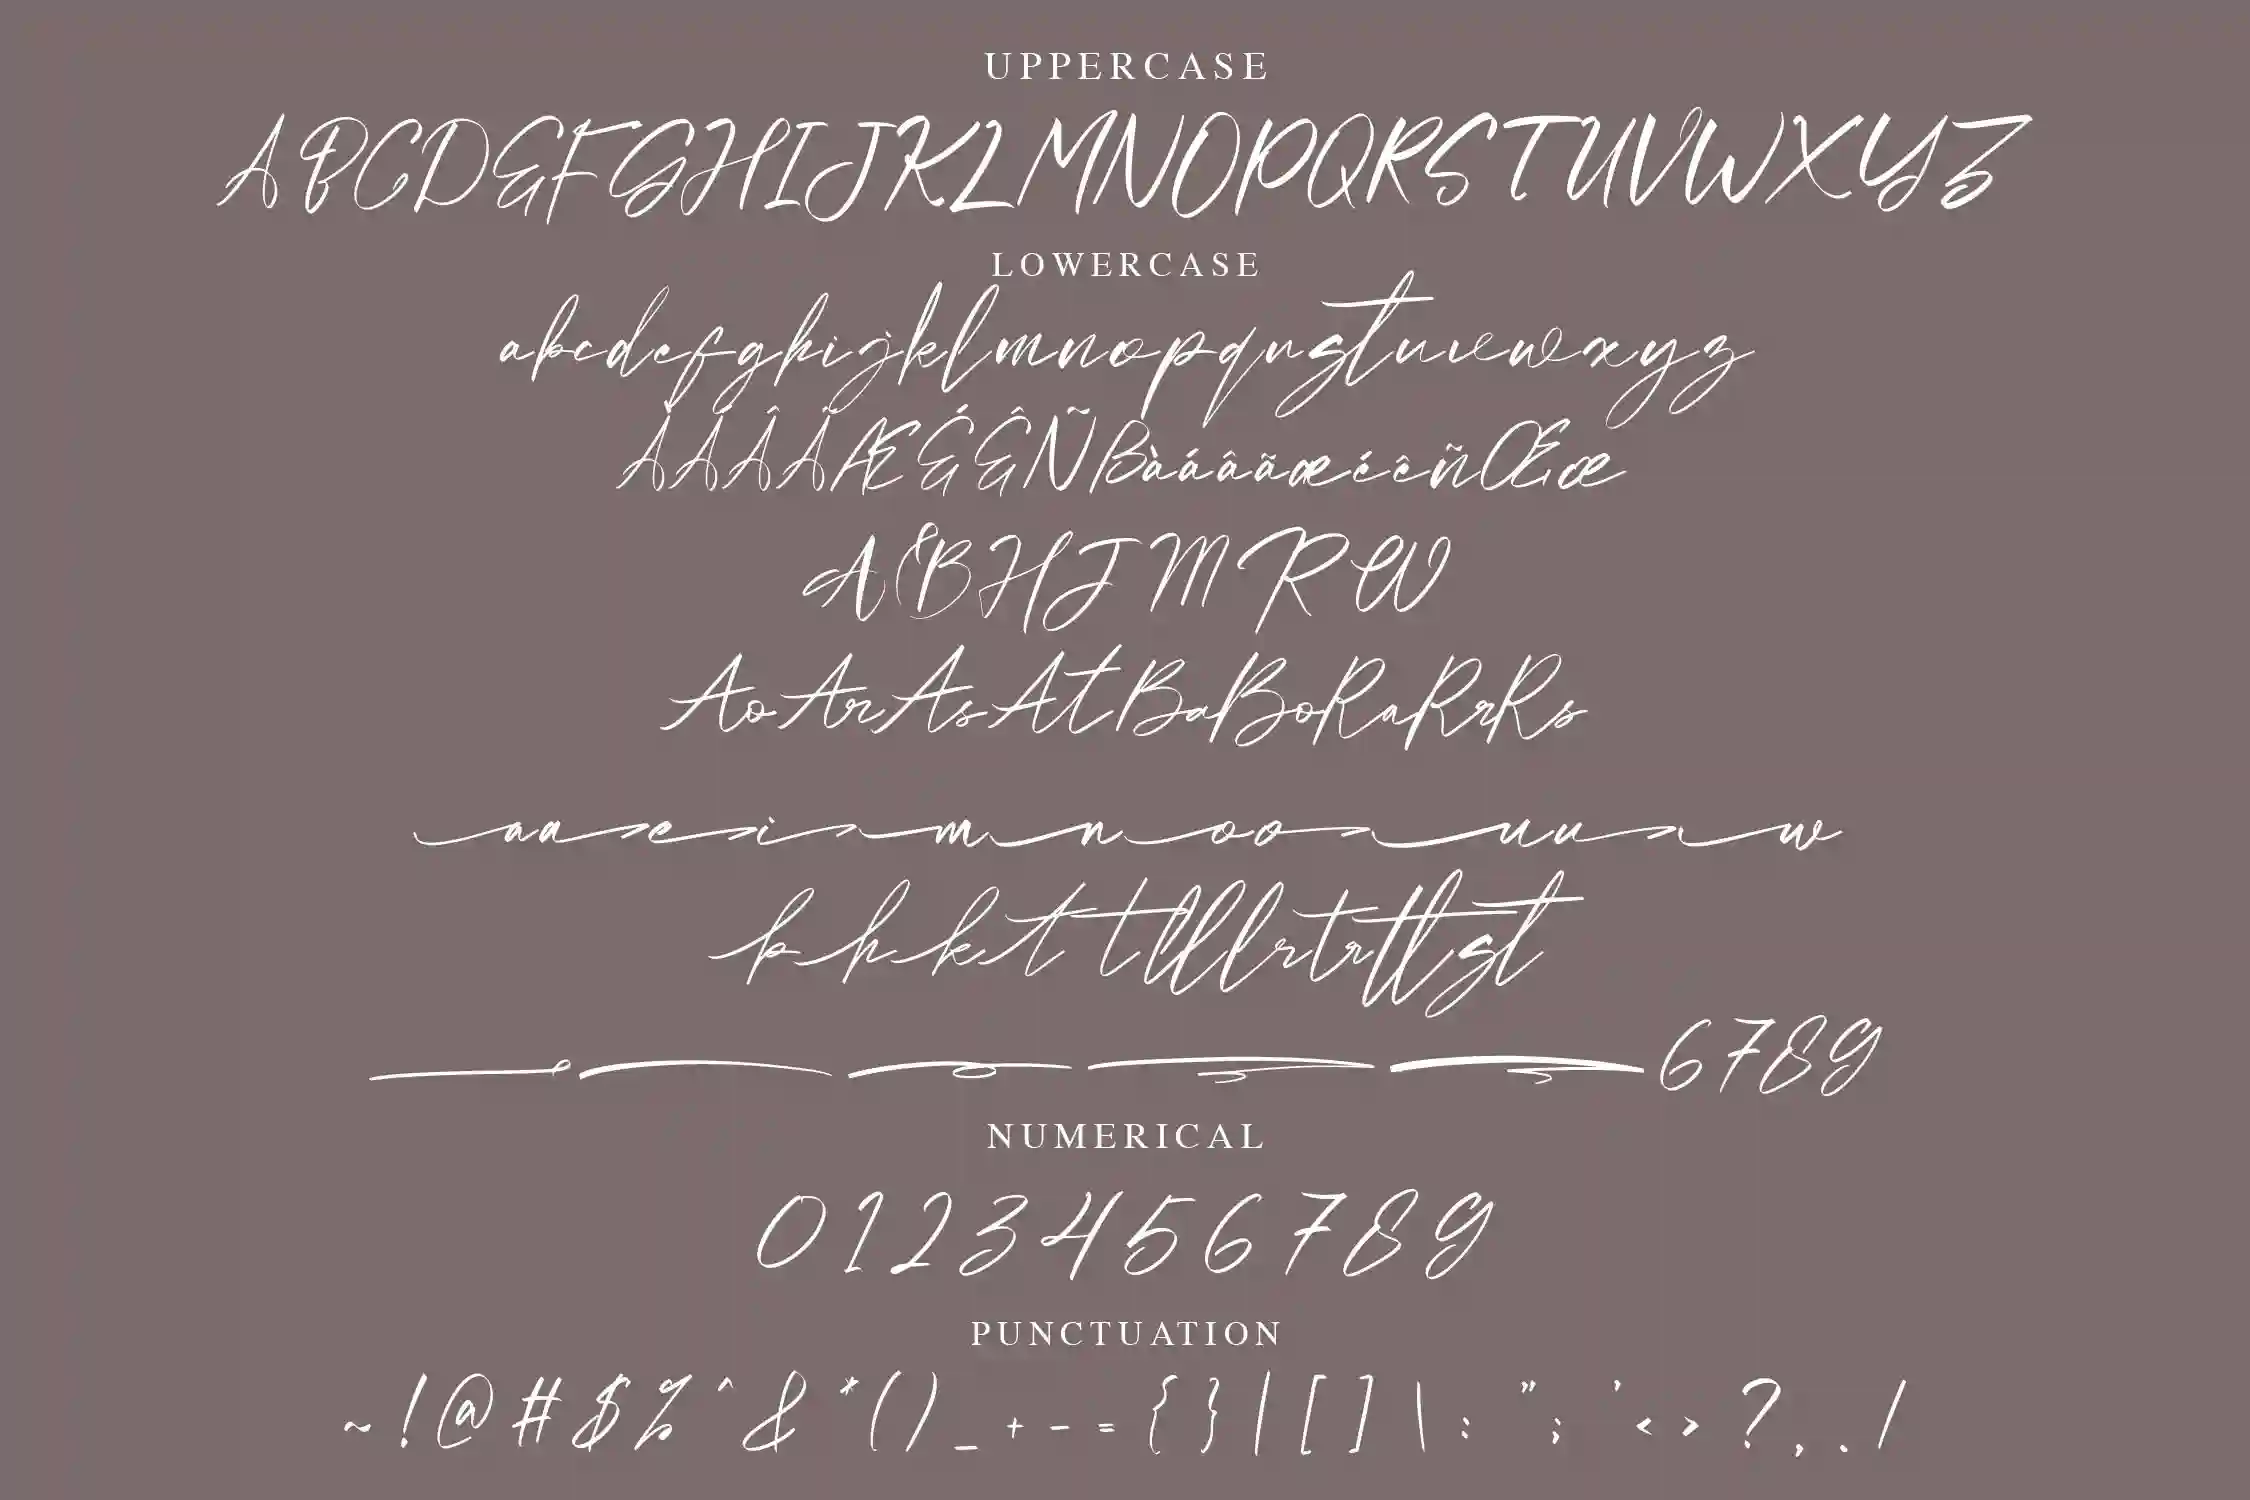 UPPERCASE
ABCDEFGHIJKLMNOPQRSTUVWXYZ
LOWERCASE
abcdefghijklmnopqrstuvwxyz
ÀÁÂÄÆÉÊÑBàáâãæéêñŒœ
ABHJMRW
AoArAsAtBaBoRaRrRs
aaeimnoouuaw
bhkttttllrtrttlst
6789
NUMERICAL
0123456789
PUNCTUATION
~!@#$%^&*()_+-={}|[]\:";'<>?,./